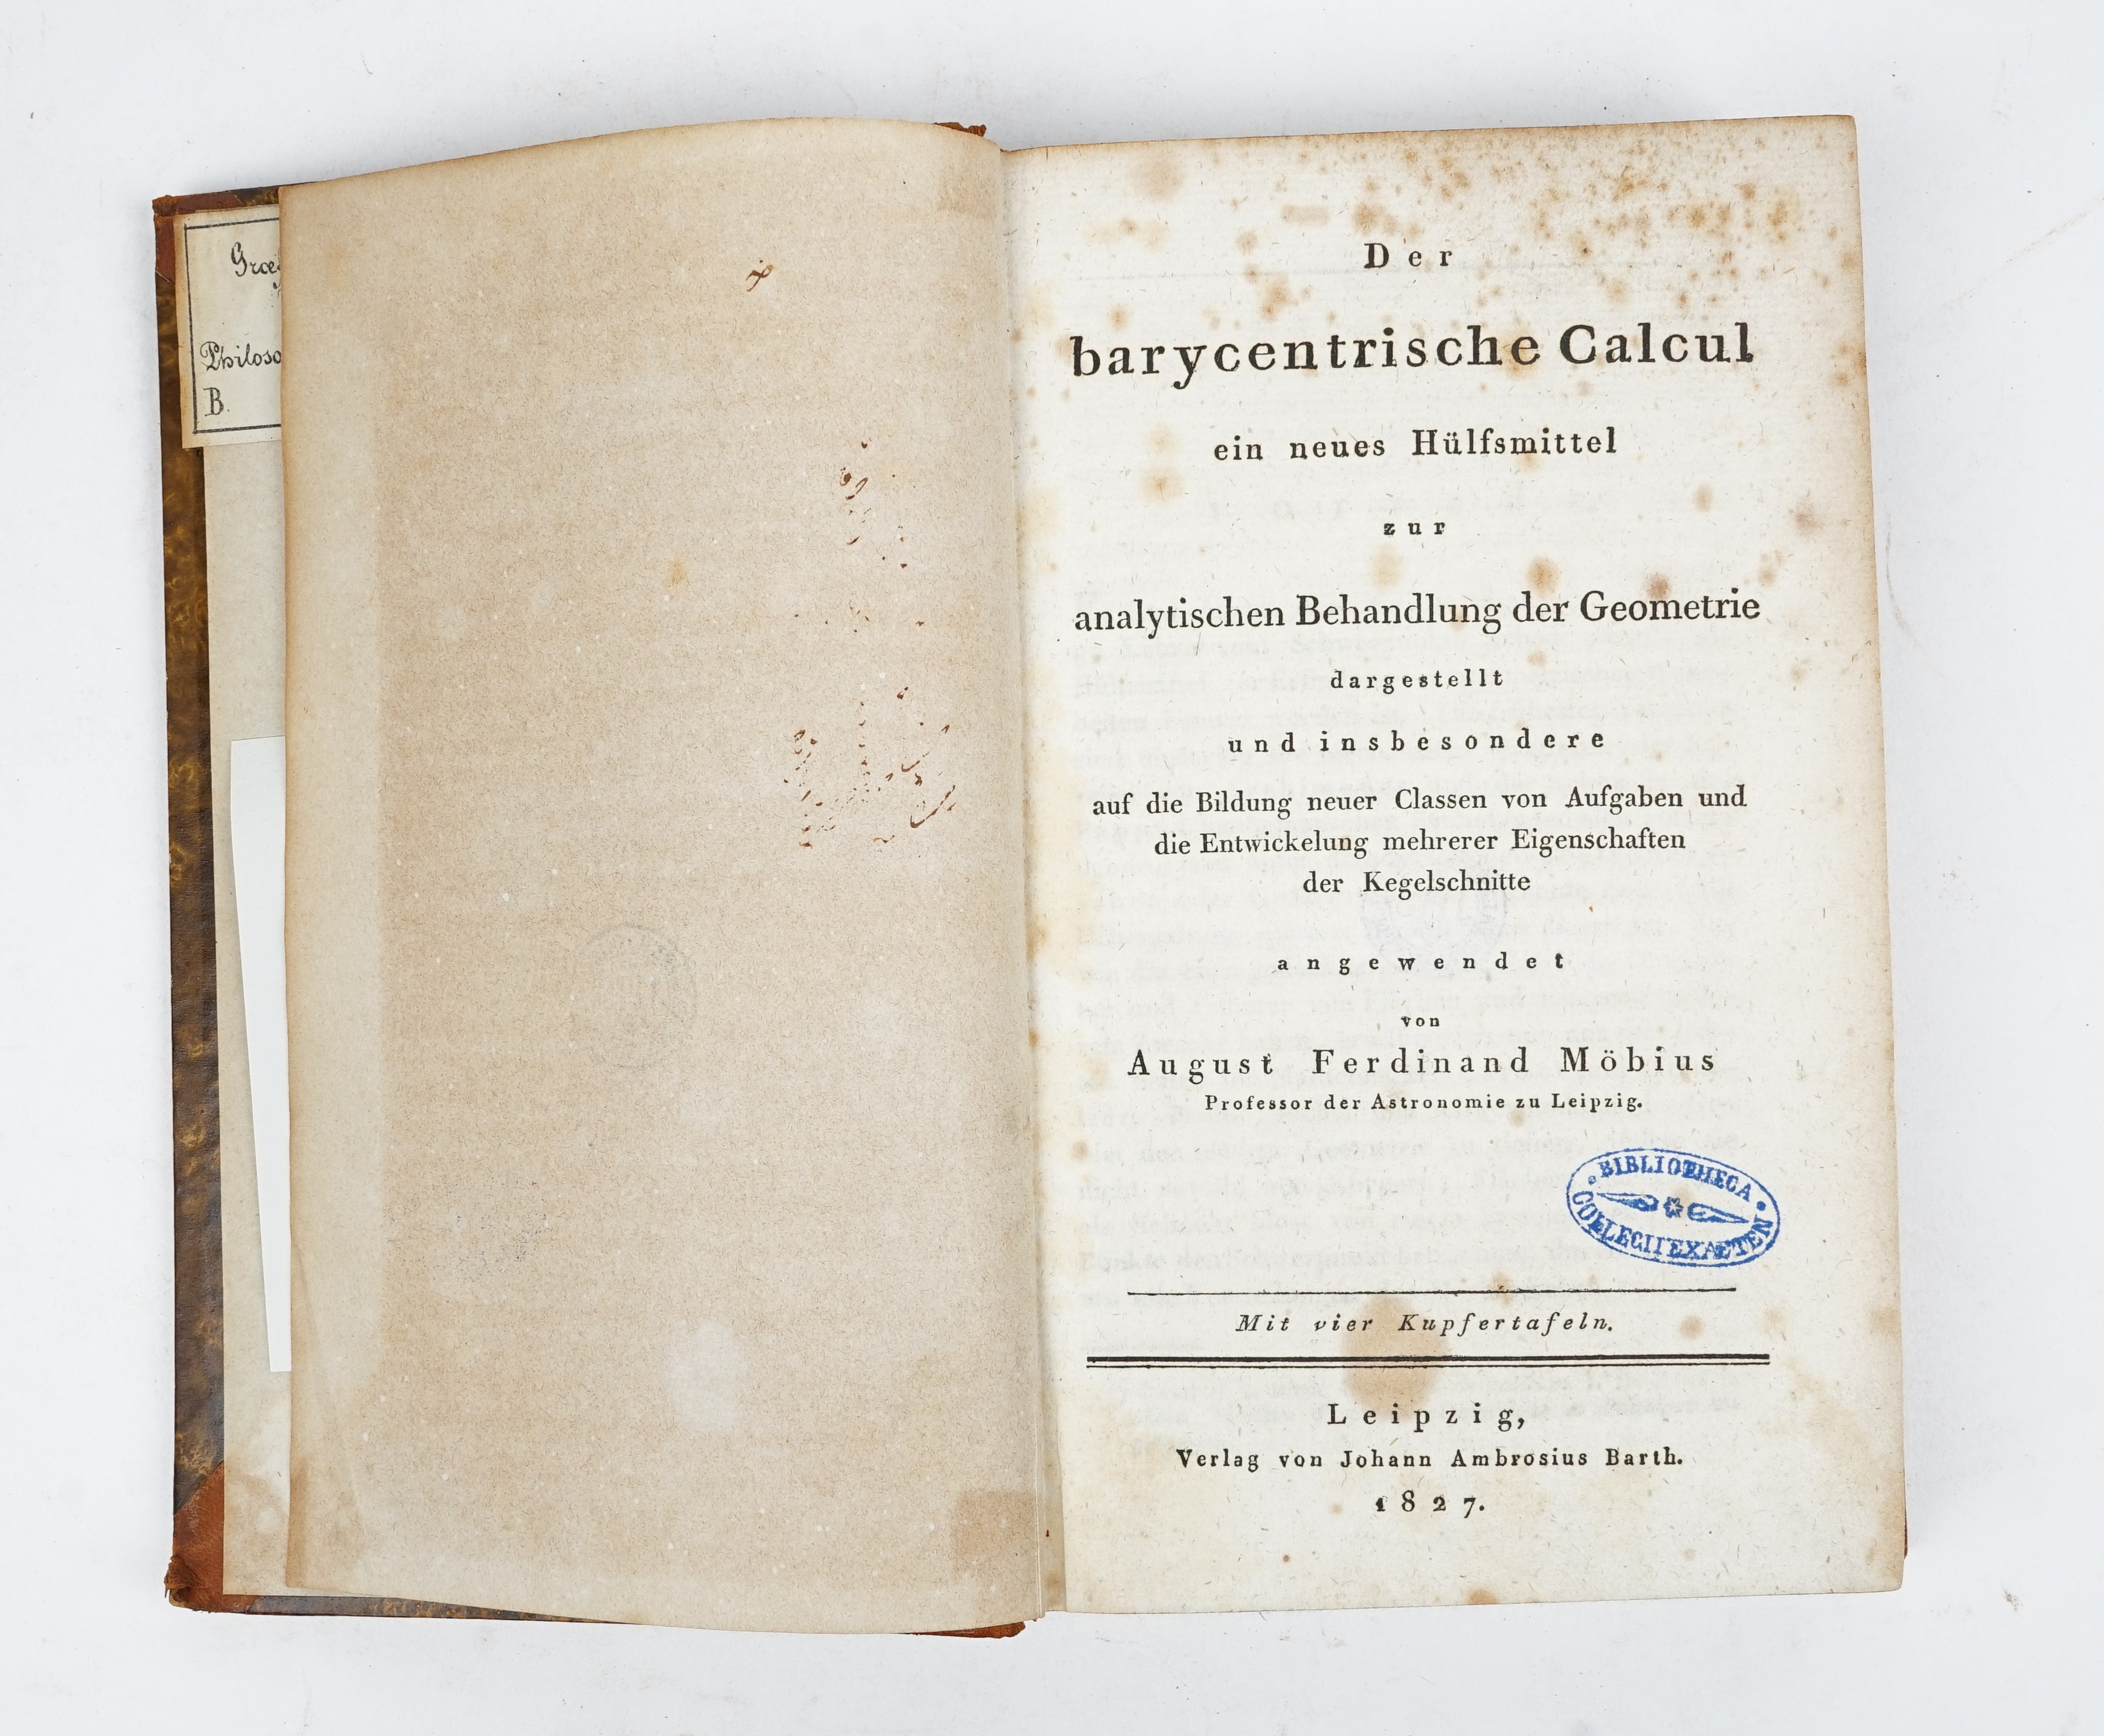 B.
Der
barycentrische Calcul
ein neues Hülfsmittel
zur
analytischen Behandlung der Geometrie
dargestellt
und insbesondere
auf die Bildung neuer Classen von Aufgaben und
die Entwickelung mehrerer Eigenschaften
der Kegelschnitte
angewendet
von
August Ferdinand Möbius
Professor der Astronomie zu Leipzig.
BIBLIOTHECA
COLLEGII EXAETEN
Mit vier Kupfertafeln.
Leipzig,
Verlag von Johann Ambrosius Barth.
1827.